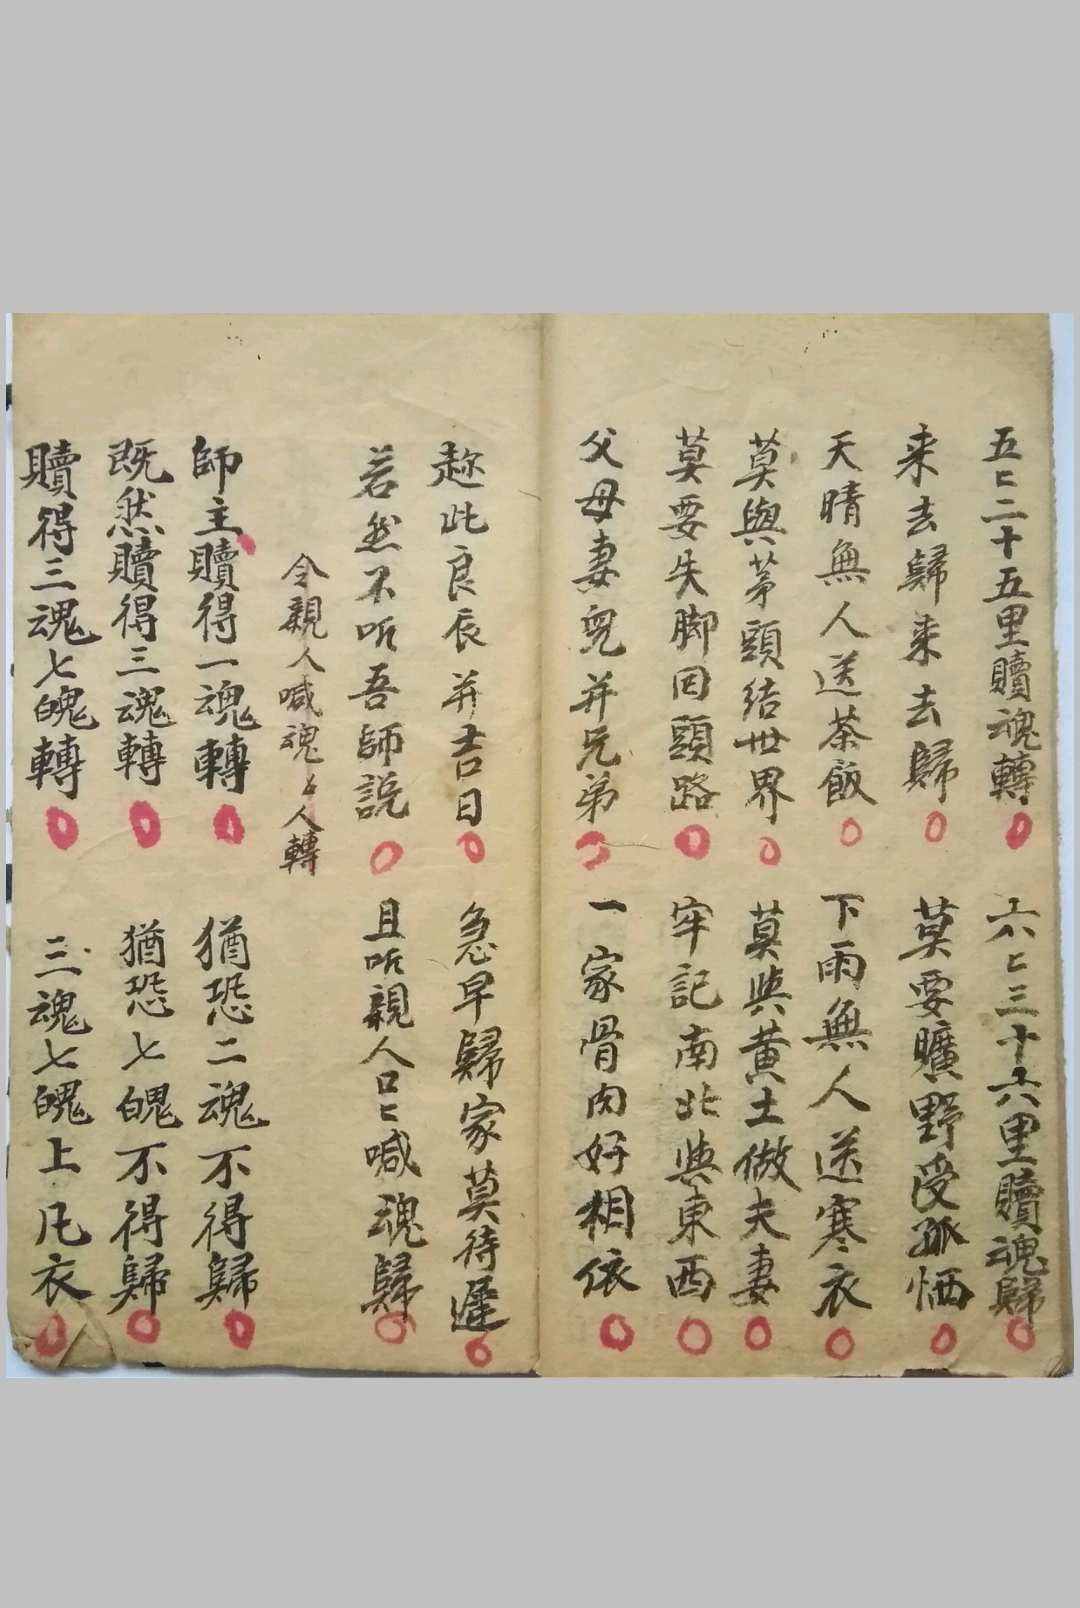 五匕二十五里贖魂轉 六匕三十六里贖魂歸
来去歸来去歸 莫要曠野受孤恓
天晴無人送茶飯 下雨無人送寒衣
莫與茅頭結世界 莫與黄土做夫妻
莫要失脚回頭路 牢記南北與東西
父母妻兒并兄弟 一家骨肉好相依
趂此良辰并吉日 急早歸家莫待遲
若然不听吾師説 且听親人口匕喊魂歸
令親人喊魂匕人轉
師主贖得一魂轉 猶恐二魂不得歸
既然贖得三魂轉 猶恐七魄不得歸
贖得三魂七魄轉 三魂七魄上凡衣